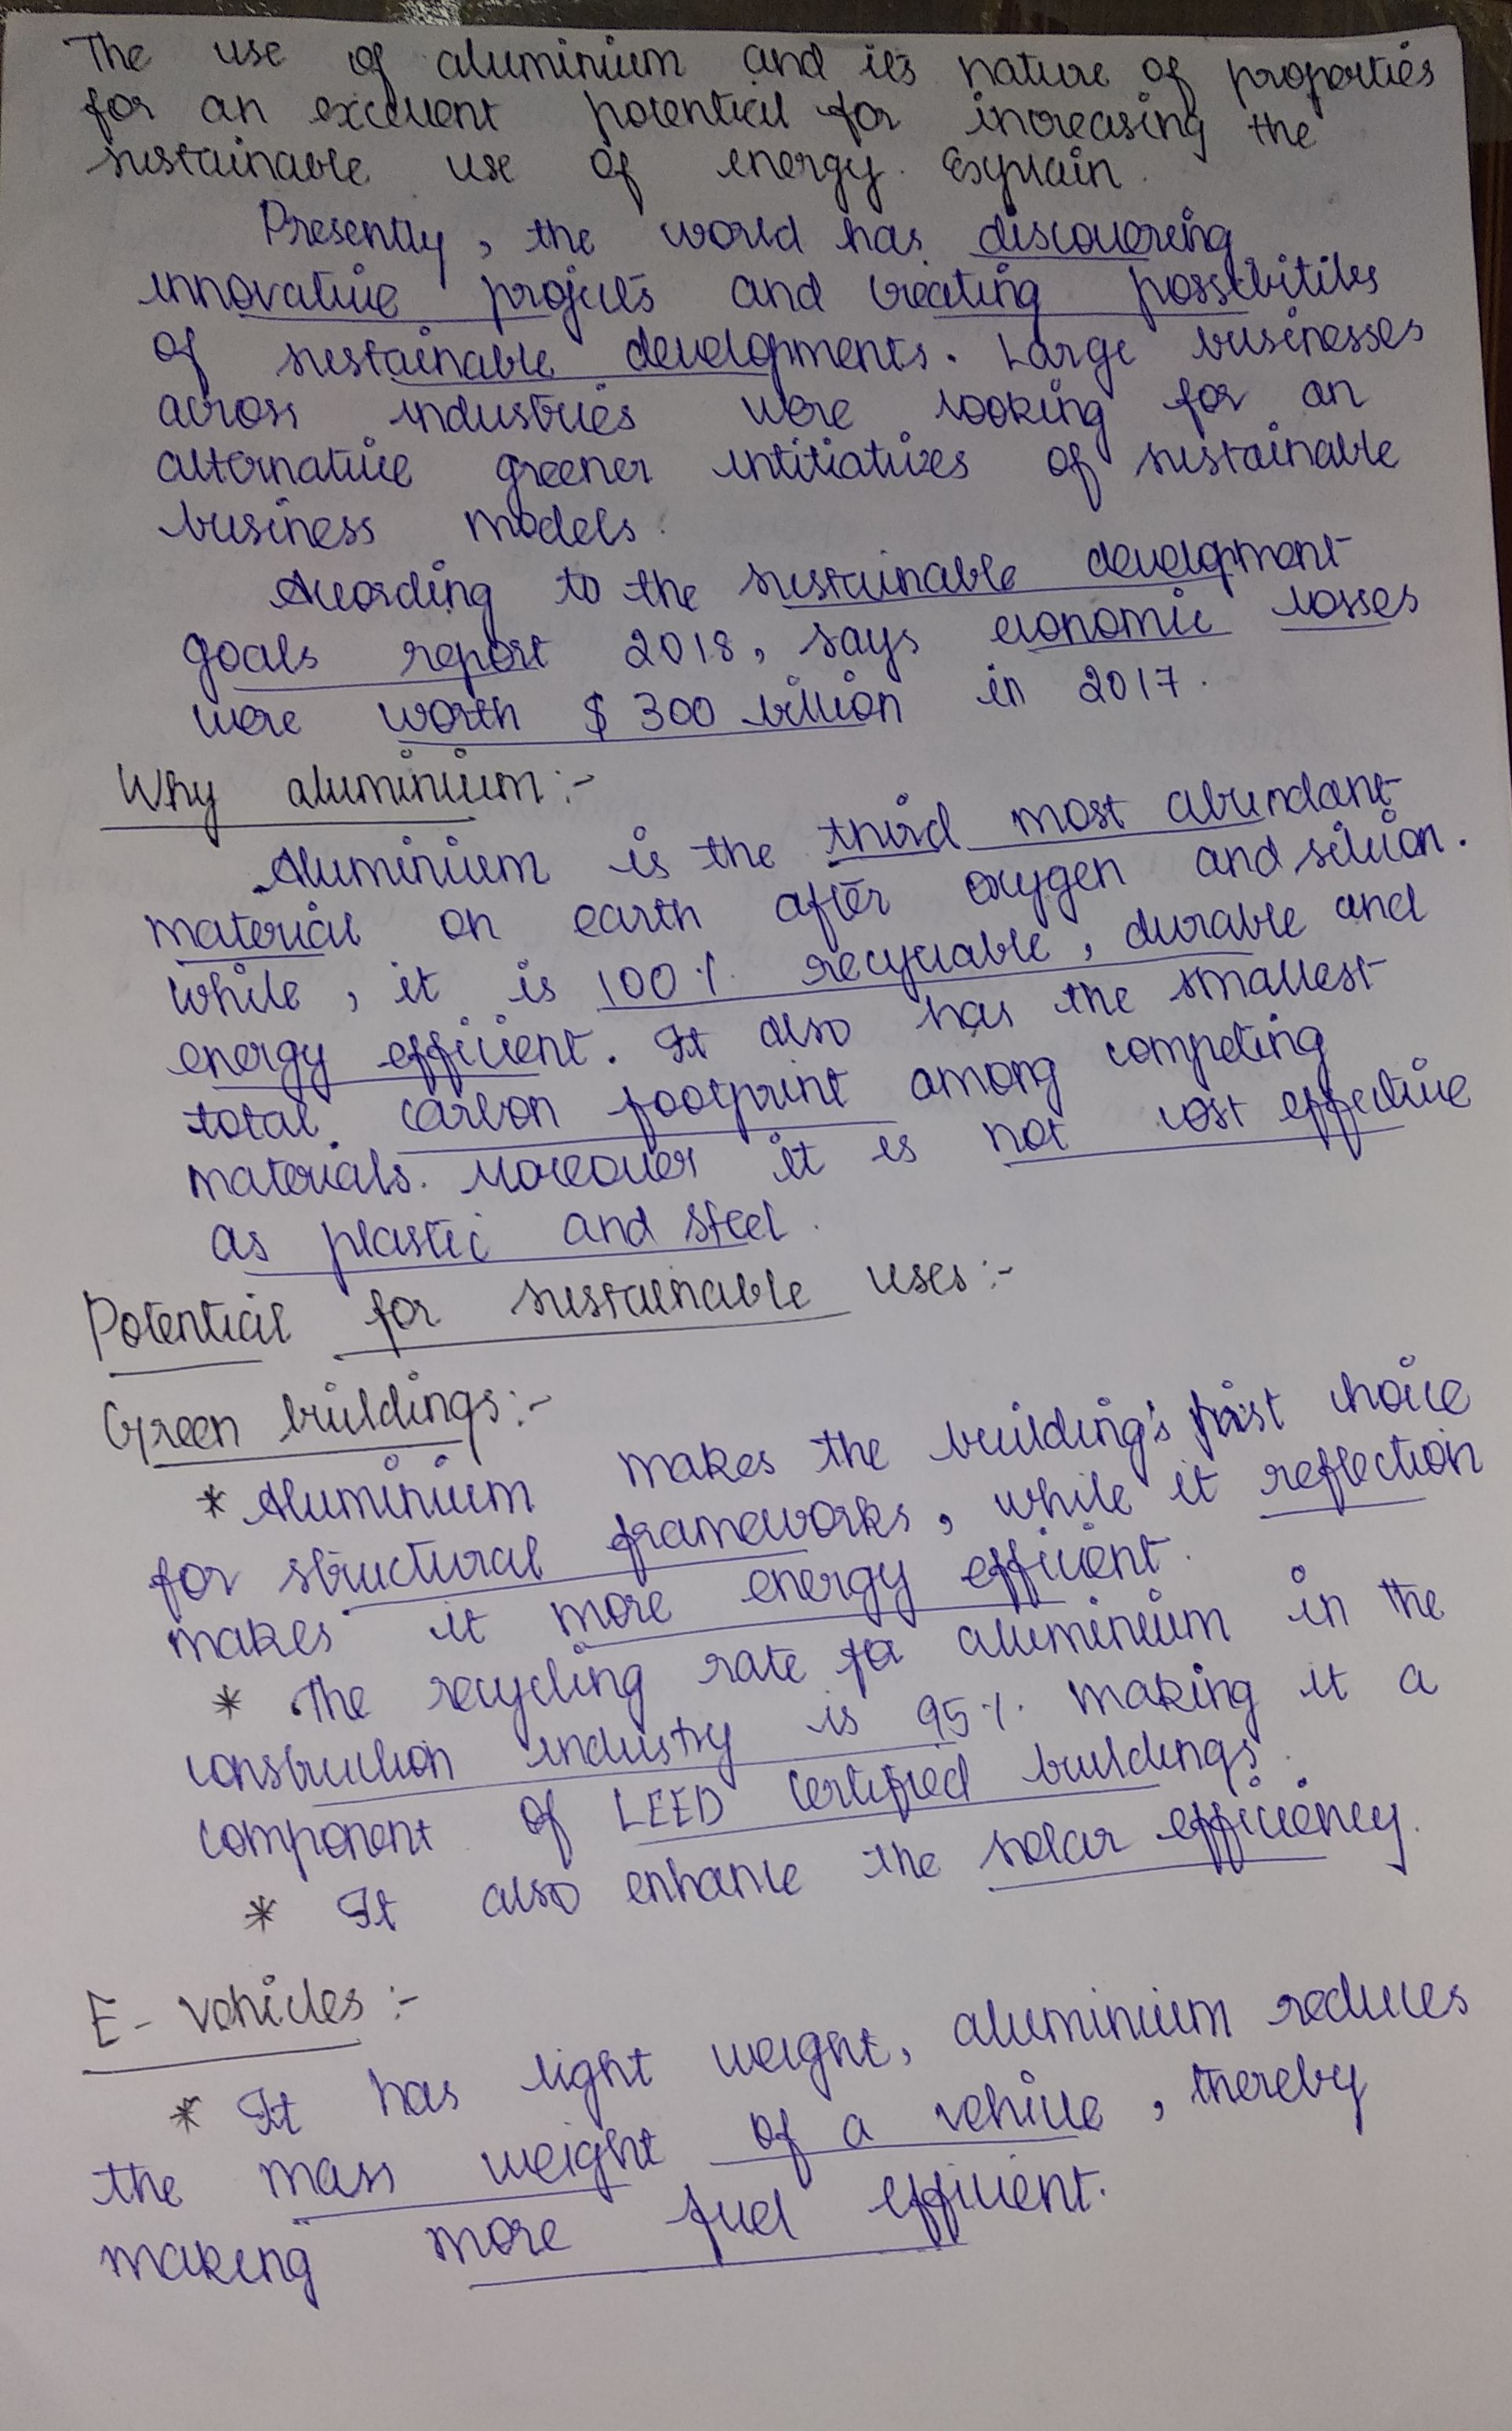 The use of aluminium and its nature of properties
for an excellent potential for increasing the
sustainable use of energy. Explain.
Presently, the world has discovering
innovative projects and creating possibitilies
of sustainable developments. Large businesses
across industries were looking for an
alternative greener intitiatives of sustainable
business models.
According to the sustainable development
goals report 2018, says economic losses
were worth $ 300 billion in 2017.
Why aluminium:-
Aluminium is the third most abundant
material on earth after oxygen and silicon.
while, it is 100% recyclable, durable and
energy efficient. It also has the smallest
total carbon footprint among competing
materials. Moreover it is not cost effective
as plastic and steel.
Potential for sustainable uses:-
Green buildings:-
* Aluminium makes the building's first choice
for structural frameworks, while it reflection
makes it more energy efficient.
* The recycling rate for aluminium in the
construction industry is 95% making it a
component of LEED certified buildings.
* It also enhance the solar efficiency.
E- vehicles:-
* It has light weight, aluminium reduces
the mass weight of a vehicle, thereby
making more fuel efficient.